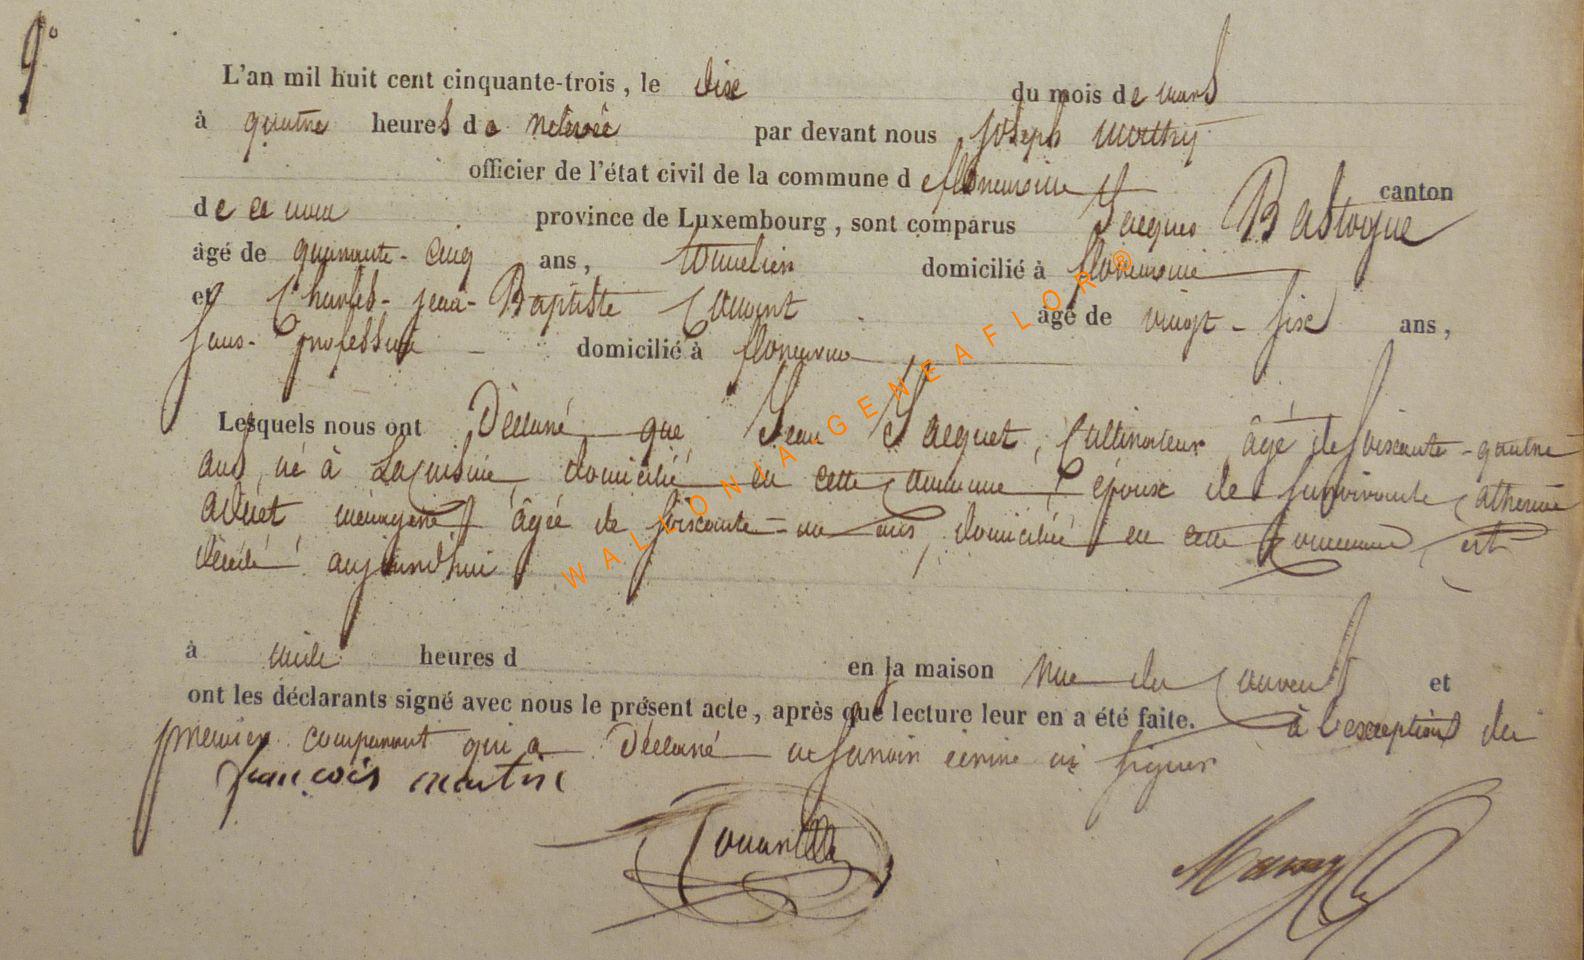 9°
L'an mil huit cent cinquante-trois, le dix du mois de mars
à quatre heures de relevée par devant nous Joseph
officier de l'état civil de la commune de florenville canton
de ce nom province de Luxembourg, sont comparus Jacques Bastogne
âgé de quarante-cinq ans, tonnelier domicilié à florenville
et Charles-jean-Baptiste
âgé de vingt-six ans,
sans-profession domicilié à florenville
Lesquels nous ont Déclaré que Jean Jacquet, Cultivateur âgé de soixante-quatre
ans, né à Lacuisine, domicilié en cette Commune, époux de survivante Catherine
ménagère âgée de soixante-un ans, domiciliée en cette Commune est
décédé aujourd'hui
à heures d en la maison rue du Couvent et
ont les déclarants signé avec nous le présent acte, après que lecture leur en a été faite. à l'exception du
premier comparant qui a Déclaré ne savoir écrire ni signer
françois martin
WALLONIA-GENEAFLOR®